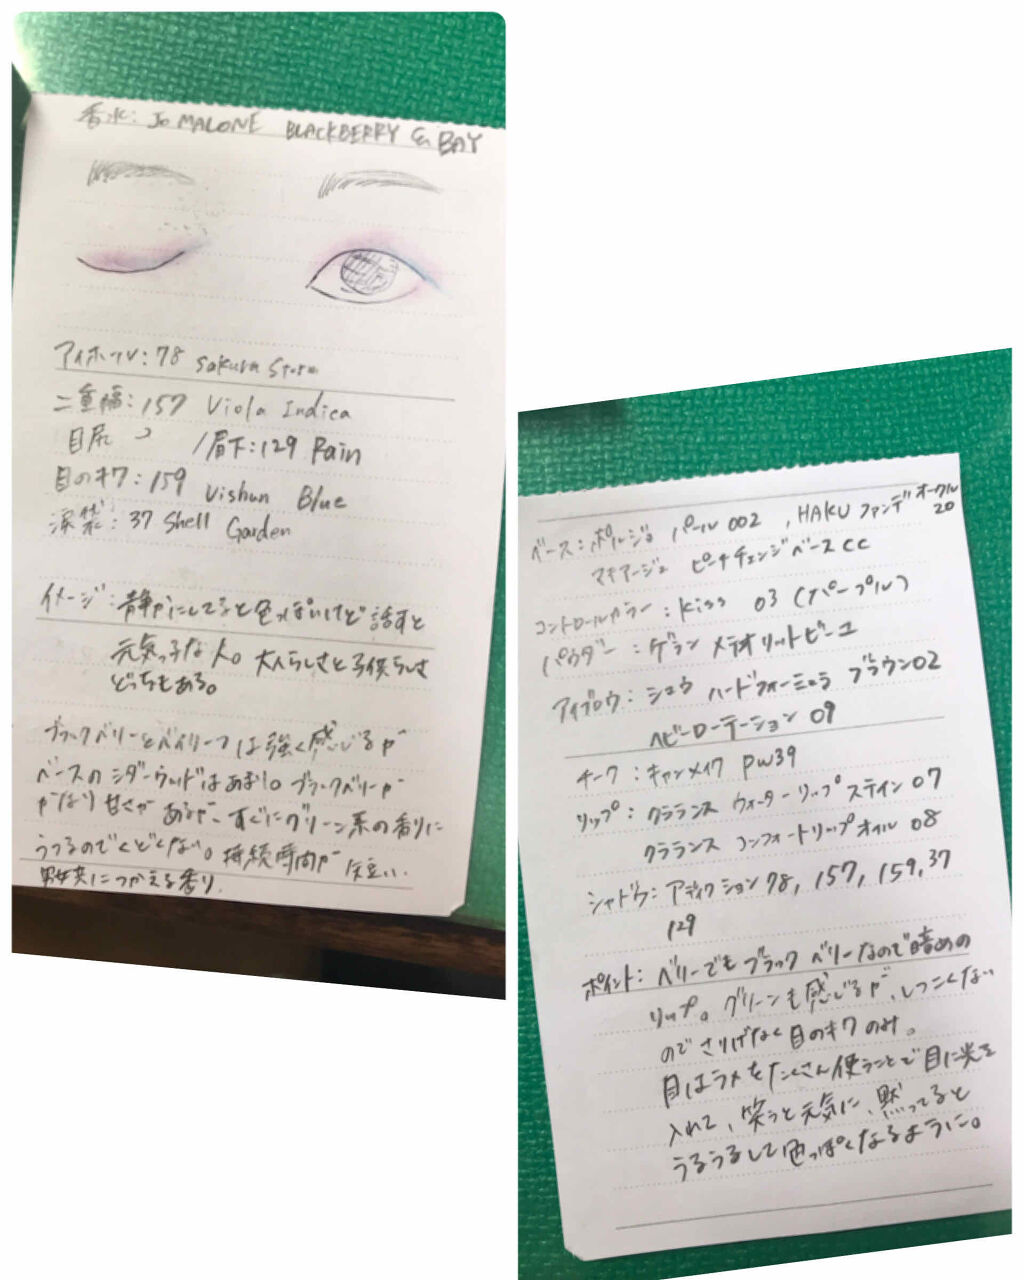 香水: Jo MALONE BLACKBERRY & BAY
アイホール: 78 Sakura Storm
二重幅: 157 Viola Indica
目尻 〃 /眉下: 129 Rain
目のキワ: 159 Vishun Blue
涙袋: 37 Shell Garden
イメージ: 静かにしてると色っぽいけど話すと
元気っ子な人。大人らしさと子供らしさ
どっちもある。
ブラックベリーとベイリーフは強く感じるが
ベースのシダーウッドはあまり。ブラックベリーが
かなり甘さがあるが、すぐにグリーン系の香りに
うつるのでくどくない。持続時間が短い。
男女共につかえる香り。
ベース: ポルジョ パール 002, HAKU ファンデ オークル
20
マキアージュ ピーチチェンジベースCC
コントロールカラー: Kiss 03 (パープル)
パウダー: ゲラン メテオリットビーユ
アイブロウ: シュウ ハードフォーミュラ ブラウン02
ヘビーローテーション 09
チーク: キャンメイク PW39
リップ: クラランス ウォーターリップステイン 07
クラランス コンフォートリップオイル 08
シャドウ: アディクション 78, 157, 159, 37
129
ポイント: ベリーでもブラックベリーなので暗めの
リップ。グリーンも感じるが、しつこくない
のでさりげなく目のキワのみ。
目はラメをたくさん使うことで目に光を
入れて、笑うと元気に、黙ってると
うるうるして色っぽくなるように。